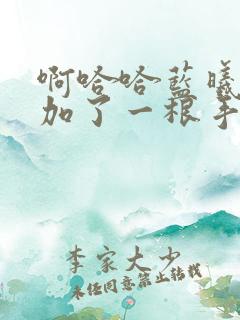 啊哈哈蓝曦
加了一根手
李家大少
未经同意禁止转载